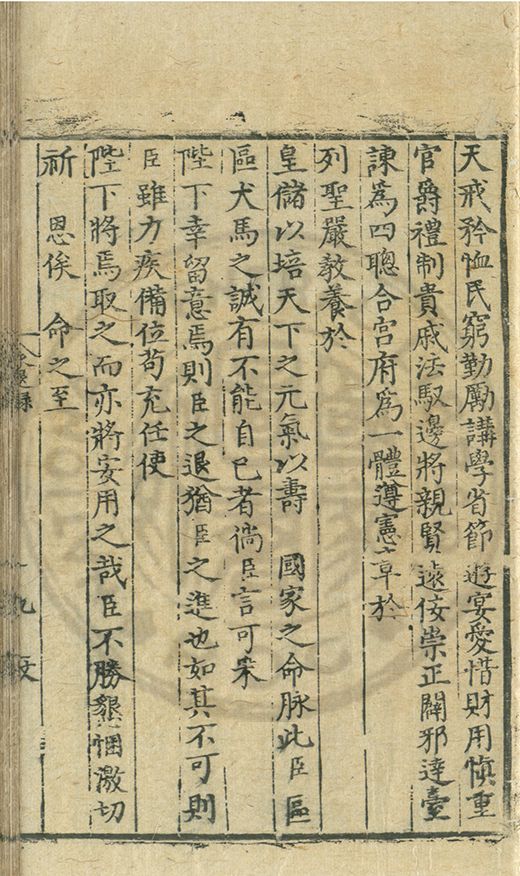 天戒矜恤民窮勤勵講學省節遊宴愛惜財用慎重
官爵禮制貴戚法馭邊將親賢遠佞崇正闢邪達臺
諫為四聰合宮府為一體遵憲章於
列聖嚴敎養於
皇儲以培天下之元氣以壽 國家之命脉此臣區
區犬馬之誠有不能自已者倘臣言可采
陛下幸留意焉則臣之退猶臣之進也如其不可則
臣雖力疾備位苟充任使
陛下將焉取之而亦將安用之哉臣不勝懇悃激切
祈 恩俟 命之至